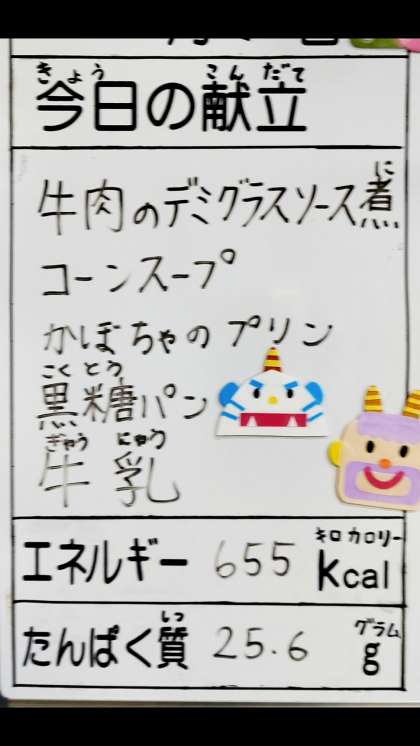 きょう こんだて
今日の献立
に
牛肉のデミグラスソース煮
コーンスープ
かぼちゃのプリン
こくとう
黒糖パン
ぎゅうにゅう
牛乳
キロカロリー
エネルギー 655 kcal
しつ グラム
たんぱく質 25.6 g